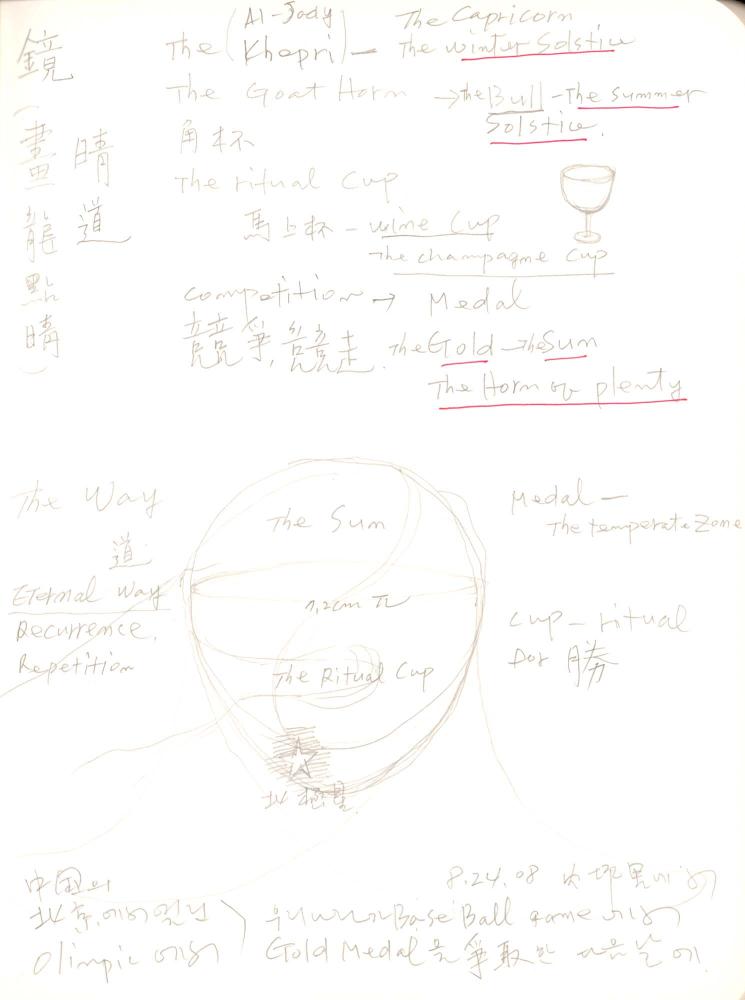 鏡
(畫龍點晴)
晴道
The (Al-Jady
Khepri) — The Capricorn
The winter Solstice
The Goat Horn → the Bull - The summer
Solstice.
角杯
The ritual Cup
馬上杯 - wine Cup
The champagne Cup
competition → Medal
競爭, 競走. The Gold — The Sun
The Horn of plenty
The Way
道
Eternal Way
Recurrence,
Repetition
The Sun
π
The Ritual Cup
北極星
Medal —
The temperate Zone
Cup - ritual
for 勝
中国의
北京에서 열린
Olimpic에서
8.24.08
우리나라가 Base Ball game에서
Gold Medal을 爭取한 다음날에